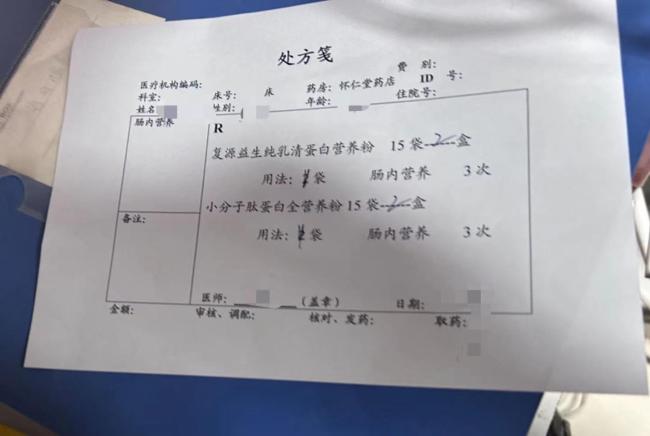 处方笺
费 别：
医疗机构编码：
科室： 床号： 床 药房：怀仁堂药店 ID 号：
姓名 性别： 年龄： 住院号：
肠内营养
R
复源益生纯乳清蛋白营养粉 15 袋----2盒
用法： 袋 肠内营养 3 次
小分子肽蛋白全营养粉 15 袋----2盒
备注：
用法： 袋 肠内营养 3 次
医师： （盖章） 日期：
金额： 审核、调配： 核对、发药： 取药：